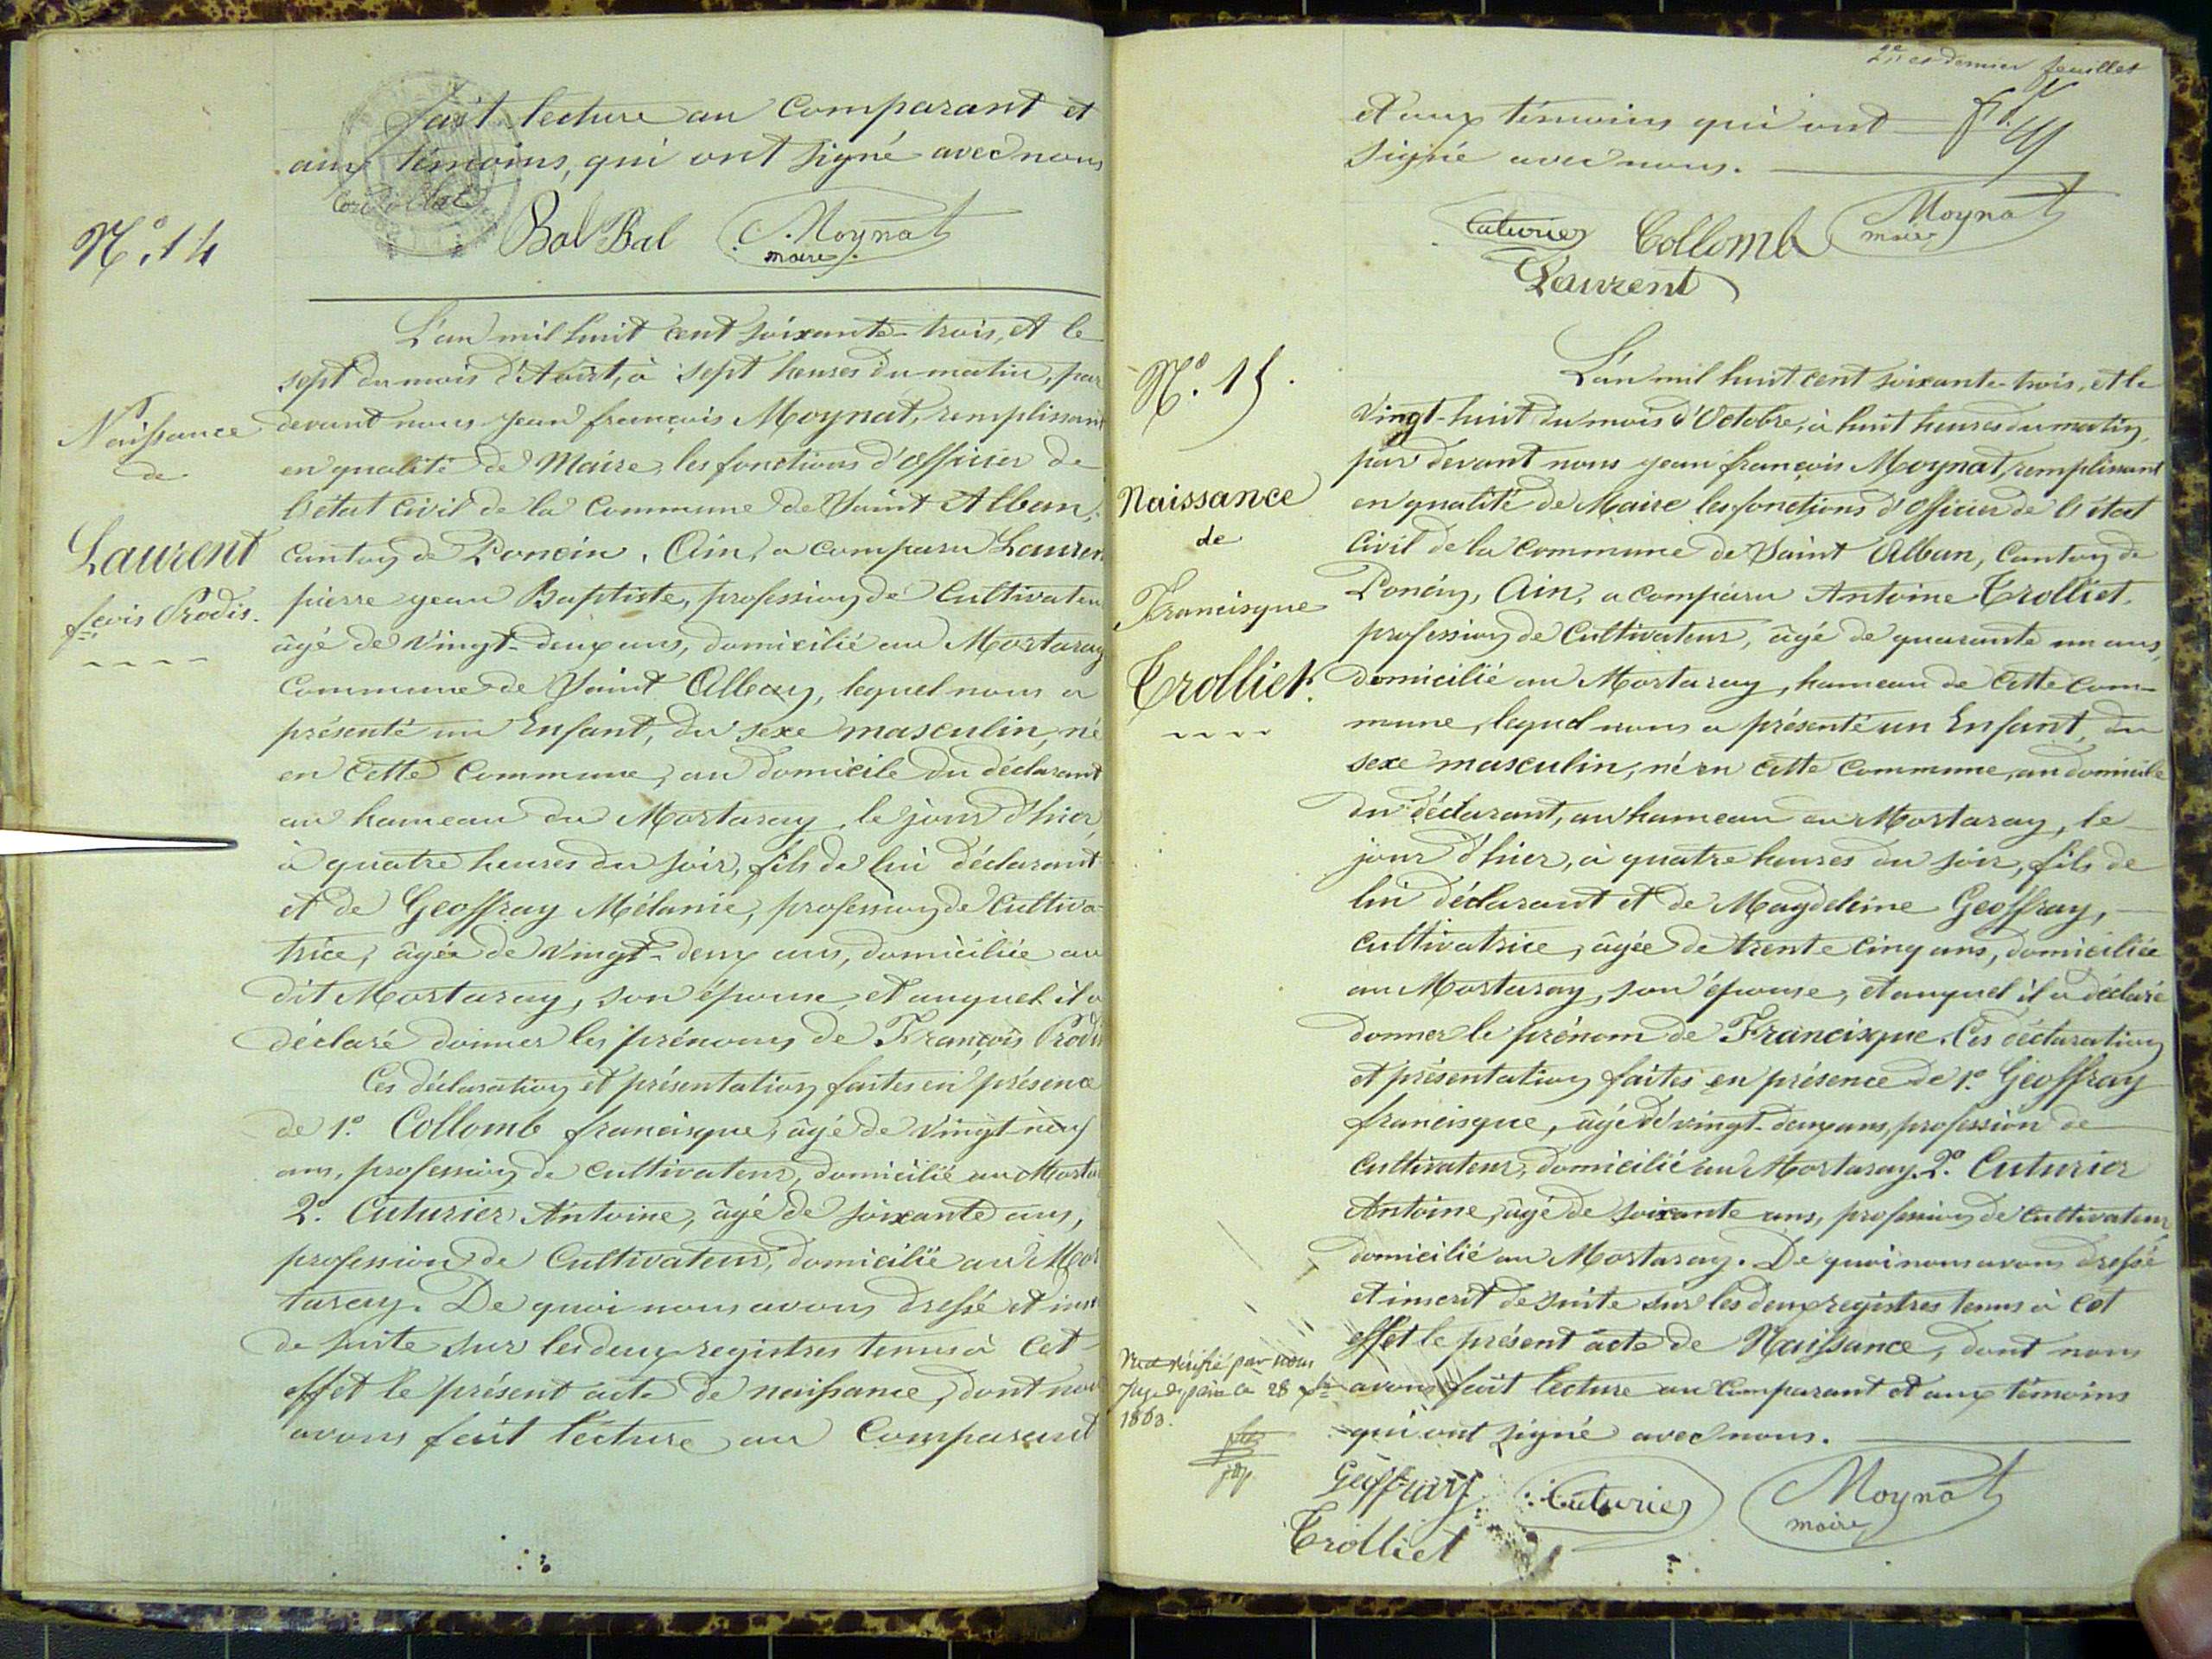 fait lecture au Comparant et
aux témoins, qui ont signé avec nous
Bal Bal Moynat
maire
N°. 14
L'an mil huit cent soixante-trois, et le
sept du mois d'Août, à sept heures du matin, par
Naissance
de
Laurent
fçois Prodis.
devant nous Jean françois Moynat, remplissant
en qualité de Maire, les fonctions d'officier de
l'état civil de la Commune de Saint Alban,
canton de Poncin, Ain, a comparu Laurent
pierre jean Baptiste, profession de Cultivateur
âgé de vingt-deux ans, domicilié au Mortaray
Commune de Saint Alban, lequel nous a
présenté un Enfant, du sexe masculin, né
en cette Commune, au domicile du déclarant
au hameau du Mortaray, le jour d'hier,
à quatre heures du soir, fils de lui déclarant
et de Geoffray Mélanie, profession de Cultiva-
trice, âgée de vingt-deux ans, domiciliée au
dit Mortaray, son épouse, et auquel il a
déclaré donner les prénoms de François Prodis
Ces déclaration et présentation faites en présence
de 1°. Collomb francisque, âgé de vingt-neuf
ans, profession de cultivateur, domicilié au Morta
2°. Cuturier Antoine, âgé de soixante ans,
profession de Cultivateur, domicilié au Mor
taray. De quoi nous avons dressé et inscrit
de suite sur les deux registres tenus à cet
effet le présent acte de naissance, dont nous
avons fait lecture au Comparant
2e et dernier feuillet
et aux témoins qui ont
signé avec nous.
Cuturier Collomb Moynat
maire
Laurent
N°. 15.
Naissance
de
Francisque
Trolliet.
L'an mil huit cent soixante-trois, et le
vingt-huit du mois d'Octobre, à huit heures du matin,
par devant nous jean françois Moynat, remplissant
en qualité de Maire les fonctions d'Officier de l'état
Civil de la Commune de Saint Alban, Canton de
Poncin, Ain, a comparu Antoine Trolliet,
profession de Cultivateur, âgé de quarante un ans,
domicilié au Mortaray, hameau de cette com-
mune, lequel nous a présenté un Enfant, du
sexe masculin, né en cette Commune, au domicile
du déclarant, au hameau du Mortaray, le
jour d'hier, à quatre heures du soir, fils de
lui déclarant et de Magdeleine Geoffray,
cultivatrice, âgée de trente cinq ans, domiciliée
au Mortaray, son épouse, et auquel il a déclaré
donner le prénom de Francisque. Ces déclaration
et présentation faites en présence de 1°. Geoffray
francisque, âgé de vingt-deux ans, profession de
Cultivateur, domicilié au Mortaray. 2°. Cuturier
Antoine, âgé de soixante ans, profession de Cultivateur,
domicilié au Mortaray. De quoi nous avons dressé
et inscrit de suite sur les deux registres tenus à cet
effet le présent acte de Naissance, dont nous
avons fait lecture au Comparant et aux témoins
qui ont signé avec nous.
Vu et vérifié par nous
Juge de paix le 28 xbre
1863.
Geoffray Cuturier Moynat
maire
Trolliet